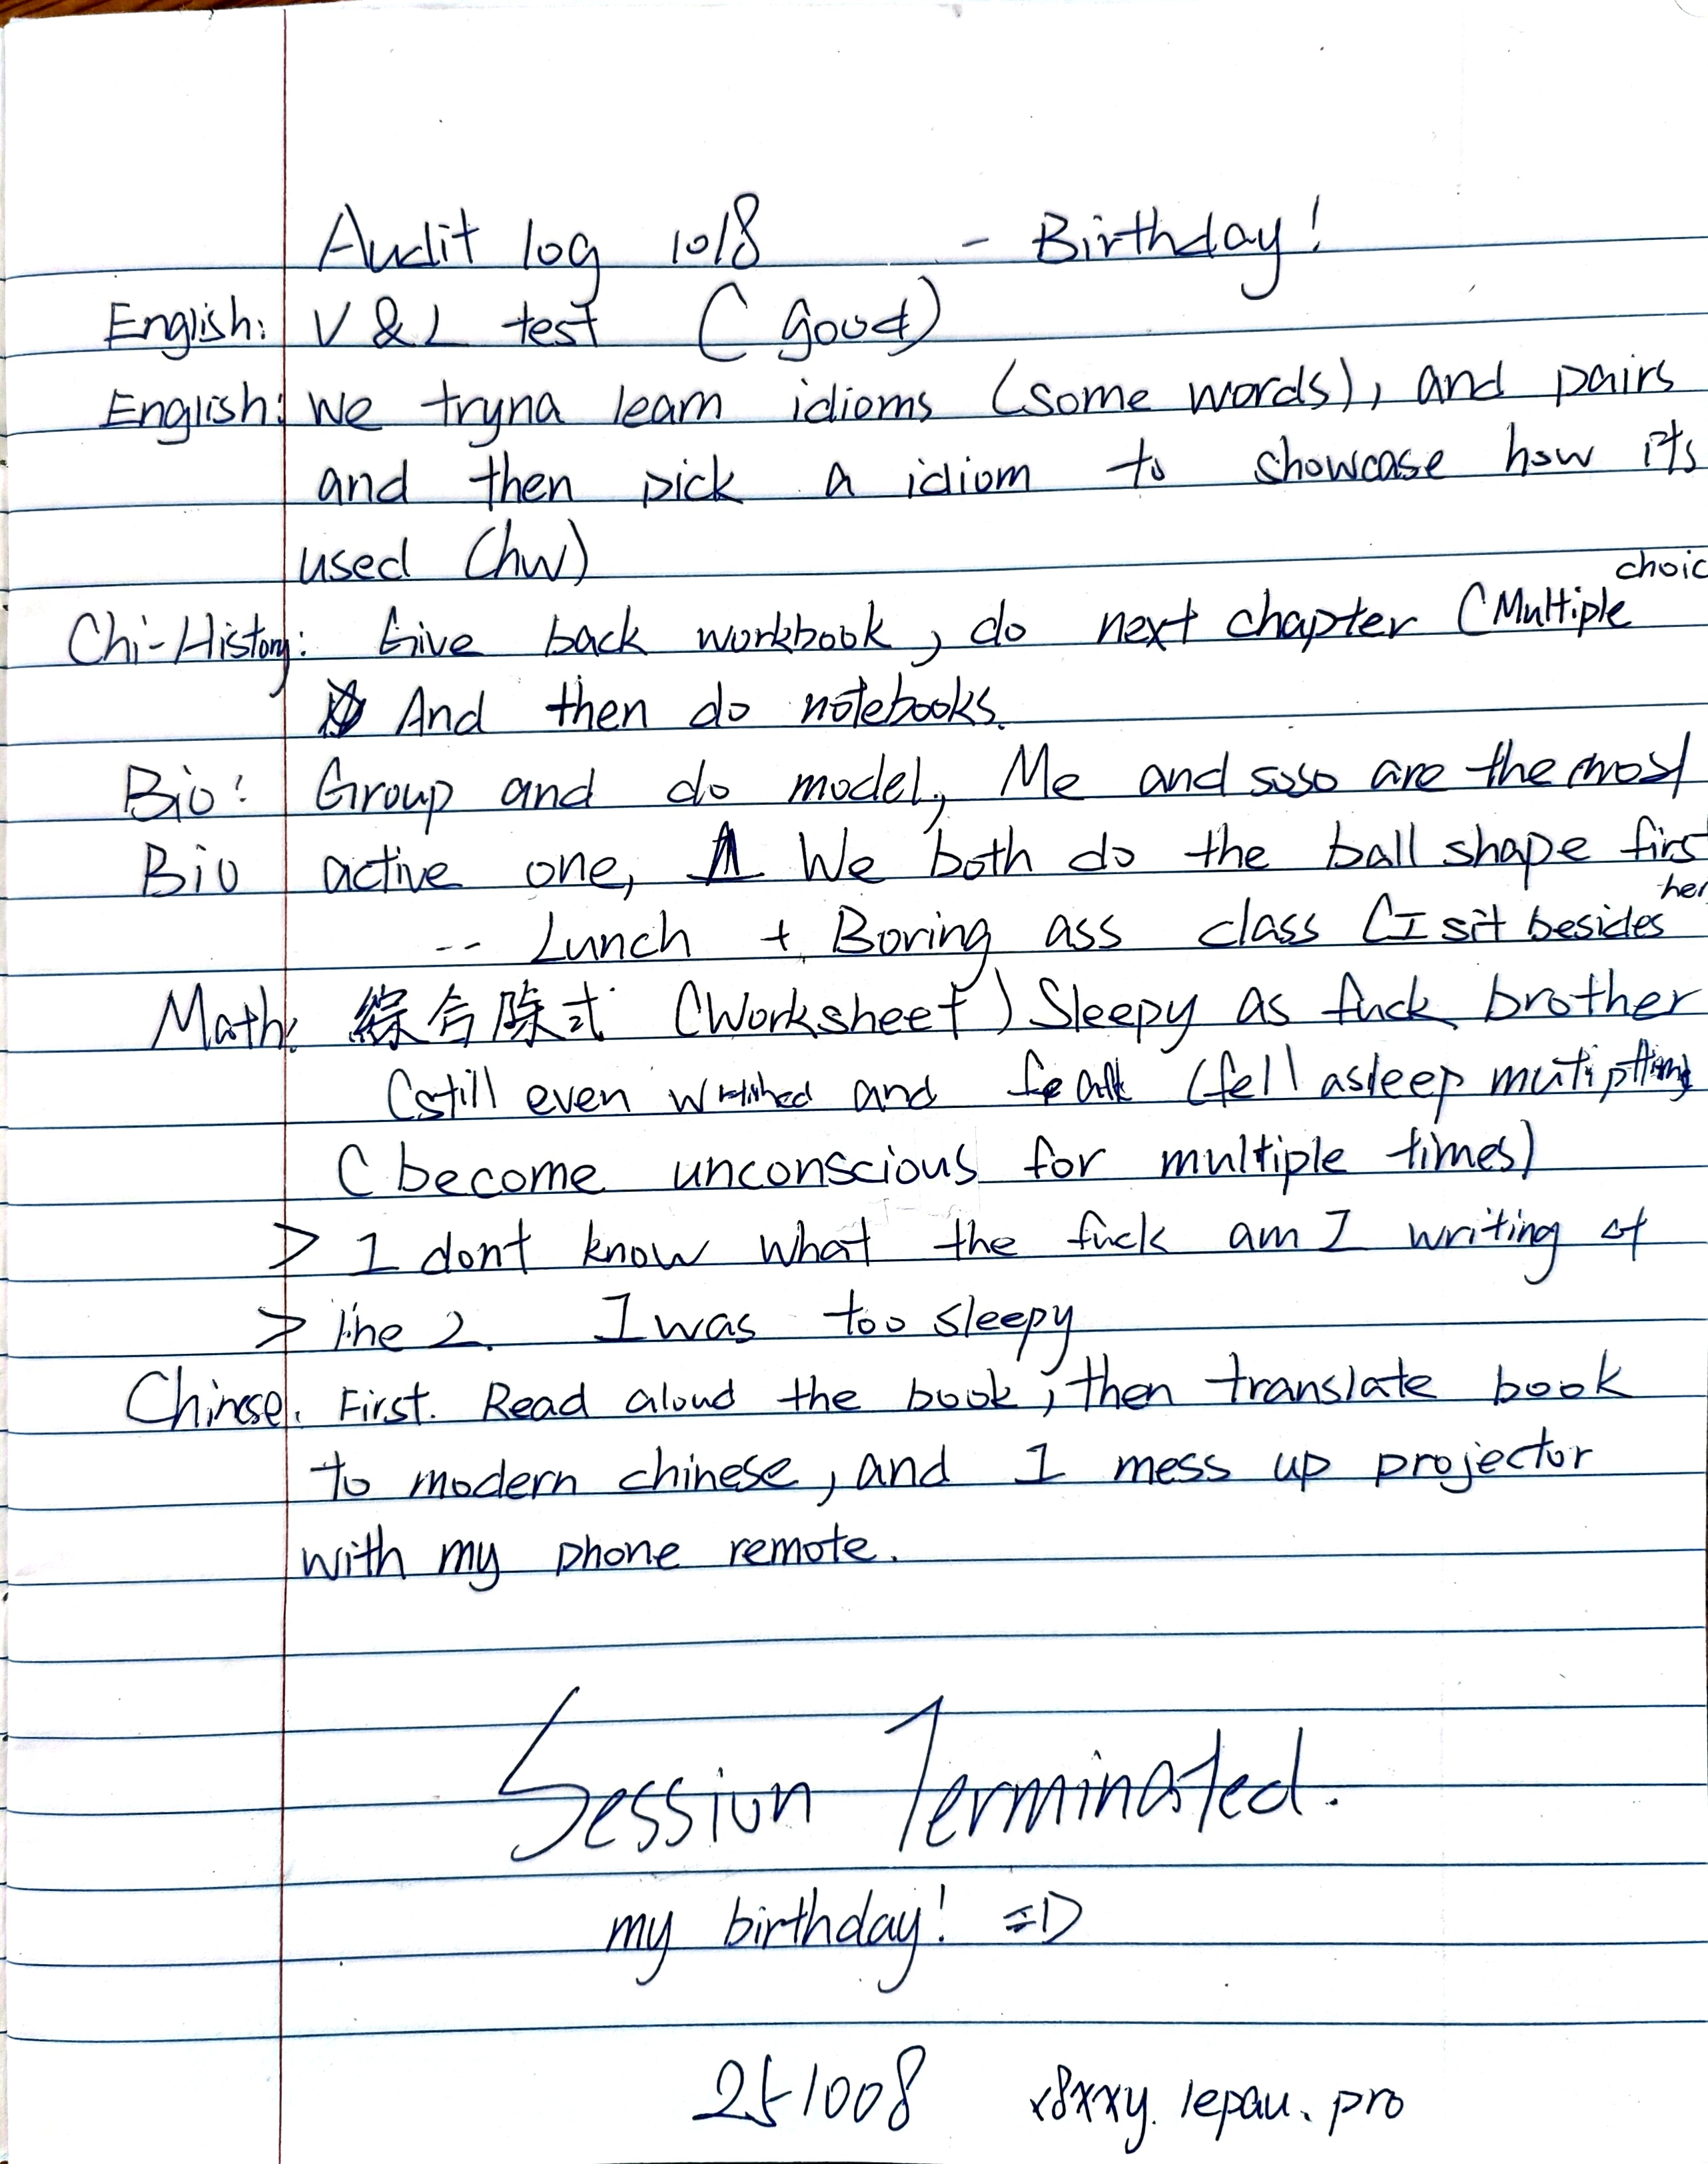 Audit log 10/8 - Birthday!
English: V & L test (good)
English: We tryna learn idioms (some words), and pairs
and then pick a idiom to showcase how its
used (hw)
choic
Chi-History: Give back workbook, do next chapter (Multiple
And then do notebooks.
Bio: Group and do model, Me and soso are the most
Bio active one, We both do the ball shape firs
her
-- Lunch + Boring ass class (I sit besides
Math: 綜合除式 (Worksheet) Sleepy as fuck brother
(still even and (fell asleep
(become unconscious for multiple times)
> I dont know what the fuck am I writing at
> line 2. I was too sleepy
Chinese. First. Read aloud the book, then translate book
to modern chinese, and I mess up projector
with my phone remote.
Session Terminated.
my birthday! =D
251008 x8xxy.lepau.pro